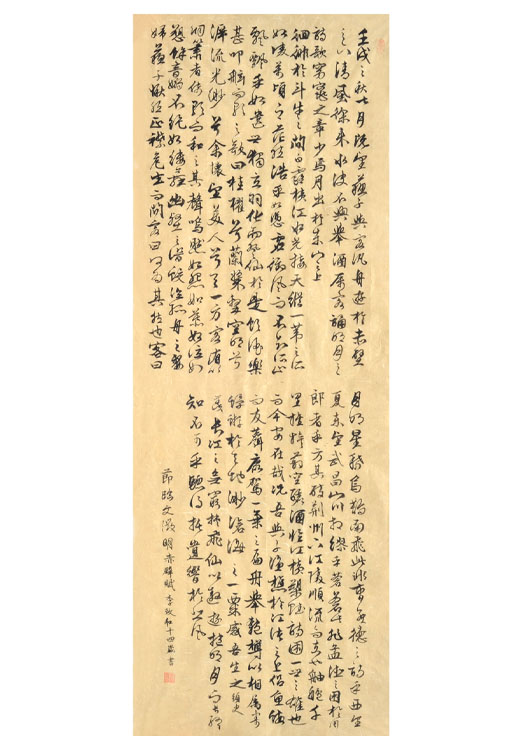 壬戌之秋七月既望蘇子與客汎舟遊於赤壁
之下清風徐來水波不興舉酒屬客誦明月之
詩歌窈窕之章少焉月出於東山之上
徘徊於斗牛之間白露橫江水光接天縱一葦之所
如凌萬頃之茫然浩乎如憑虛御風而不知所止
飄飄乎如遺世獨立羽化而登仙於是飲酒樂
甚叩舷而歌之歌曰桂櫂兮蘭槳擊空明兮
泝流光渺渺兮余懷望美人兮天一方客有吹
洞簫者倚歌而和之其聲嗚嗚然如怨如慕如泣如
愬餘音嫋嫋不絕如縷舞幽壑之潛蛟泣孤舟之嫠
婦蘇子愀然正襟危坐而問客曰何為其然也客曰
月明星稀烏鵲南飛此非曹孟德之詩乎西望
夏東望武昌山川相繆乎蒼蒼此非孟德之困於周
郎者乎方其破荊州下江陵順流而東也舳艫千
里旌旗蔽空釃酒臨江橫槊賦詩固一世之雄也
而今安在哉況吾與子漁樵於江渚之上侶魚蝦
而友麋鹿駕一葉之扁舟舉匏樽以相屬寄
蜉蝣於天地渺滄海之一粟哀吾生之須臾
羨長江之無窮挾飛仙以遨遊抱明月而長終
知不可乎驟得托遺響於悲風
節臨文徵明赤壁賦 李 十四歲書